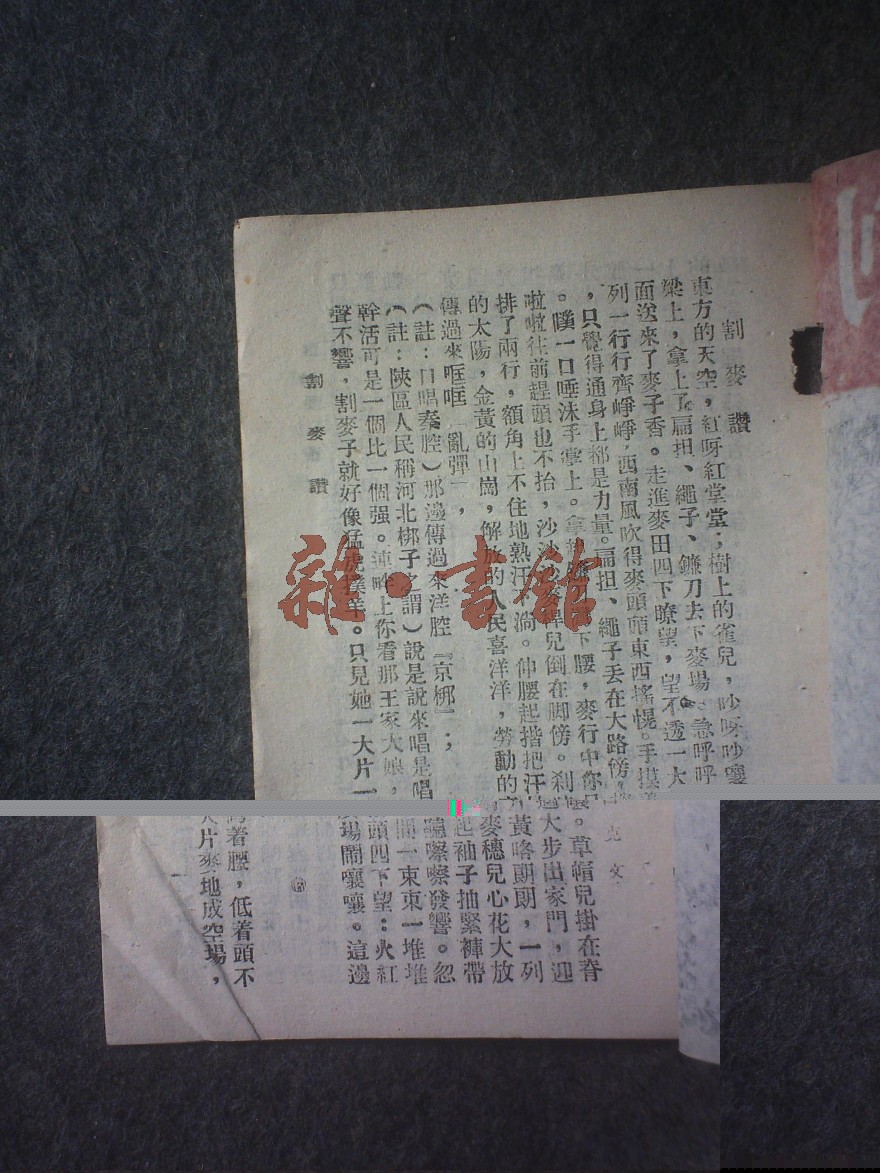 割麥讚
克文
東方的天空，紅呀紅堂堂；樹上的雀兒，吵呀吵嚷嚷。草帽兒掛在脊
梁上，拿上了扁担、繩子、鐮刀去下麥場。急呼呼大步出家門，迎
面送來了麥子香。走進麥田四下瞭望，望不透一大黃咯朗朗，一列
列一行行齊崢崢，西南風吹得麥頭頭東西搖幌。手摸麥穗兒心花大放
，只覺得通身上都是力量。扁担、繩子丢在大路傍，起袖子抽緊褲帶
。噗一口唾沫手掌上。拿下腰，麥行中你嚓嚓發響。忽
啦啦往前趕頭也不抬，沙沙兒倒在脚傍。刹一束束一堆堆
排了兩行，額角上不住地熱汗下淌。伸腰起揩把汗頭四下望：火紅
的太陽，金黃的山崗，解放的人民喜洋洋，勞動的場鬧嚷嚷。這邊
傳過來哐哐「亂彈」，
（註：口唱秦腔）那邊傳過來洋腔『京梆』；
（註：陝區人民稱河北梆子之謂）說是說來唱是唱
幹活可是一個比一個强。連畔上你看那王家大娘，着腰，低着頭不
聲不響，割麥子就好像猛虎撲羊。只見她一大片一大片麥地成空場，
割麥讚
雜·書館